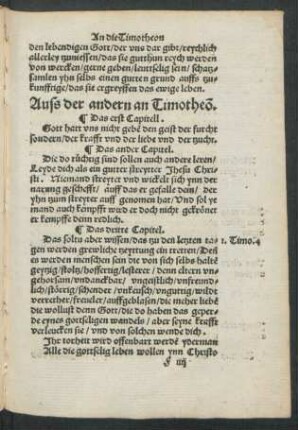 An die Timotheon
den lebendigen Gott / der vns dar gibt / reychlich
allerley zuniessen / das sie gutthun reych werden
von wercken / gerne geben / leutselig sein / schatz-
samlen yhn selbs einen guten grund auffs zu-
kunfftige / das sie ergreyffen das ewige leben.
Auss der andern an Timotheō.
¶ Das erst Capitell.
Gott hatt vns nicht gebē den geist der furcht
sondern / der krafft vnd der liebe vnd der zucht.
¶ Das ander Capitel.
Die do tüchtig sind sollen auch andere leren /
Leyde dich als ein gutter streytter Jhesu Chri-
sti. Niemand streyter vnd wickelt sich ynn der
narung geschefft / auff das er gefalle dem / der
yhn zum streyter auff genomen hat / Vnd so ye
mand auch kempfft wird er doch nicht gekrönet
er kempffe denn redlich.
¶ Das dritte Capitel.
Das solru aber wissen / das zu den letzten ta
2. Timo. 4
gen werden grewliche zeyttung ein tretten / Deñ
es werden menschen sein die von sich selbs haltē
geyzig / stoltz / hoffertig / lesterer / denn eltern vn-
gehorsam / vndanckbar / vngeistlich / vnfreund-
lich / störrig / schender / vnkeusch / vngutig / wilde
verrether / freueler / auffgeblasen / die meher liebē
die wollust denn Gott / die do haben das geper-
de eynes gotseligen wandels / aber seyne krafft
verleucken sie / vnd von solchen wende dich.
Jhr torheit wird offenbart werdē yderman
Alle die gottselig leben wollen ynn Christo